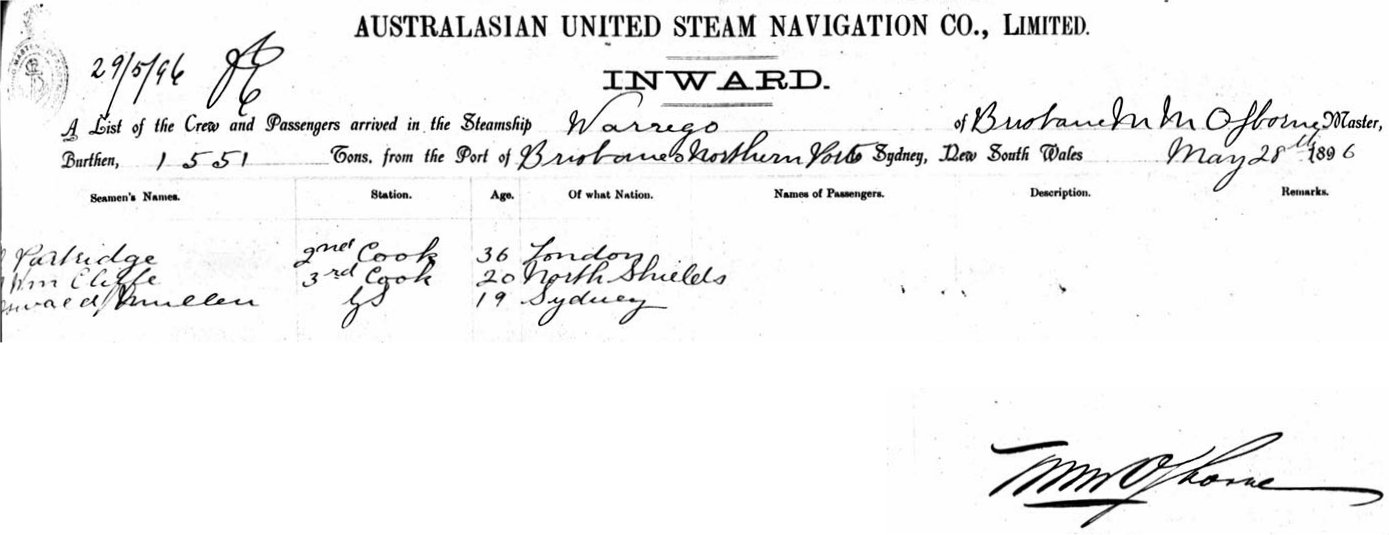 AUSTRALASIAN UNITED STEAM NAVIGATION CO., LIMITED.
29/5/96
INWARD.
A List of the Crew and Passengers arrived in the Steamship Warrego of Brisbane M M Osborne Master,
Burthen, 1551 Tons. from the Port of Brisbane & Northern Ports Sydney, New South Wales May 28th 1896
Seamen's Names. Station. Age. Of what Nation. Names of Passengers. Description. Remarks.
Partridge 2nd Cook 36 London
Wm Cliffe 3rd Cook 20 North Shields
Mullen GS 19 Sydney
Osborne